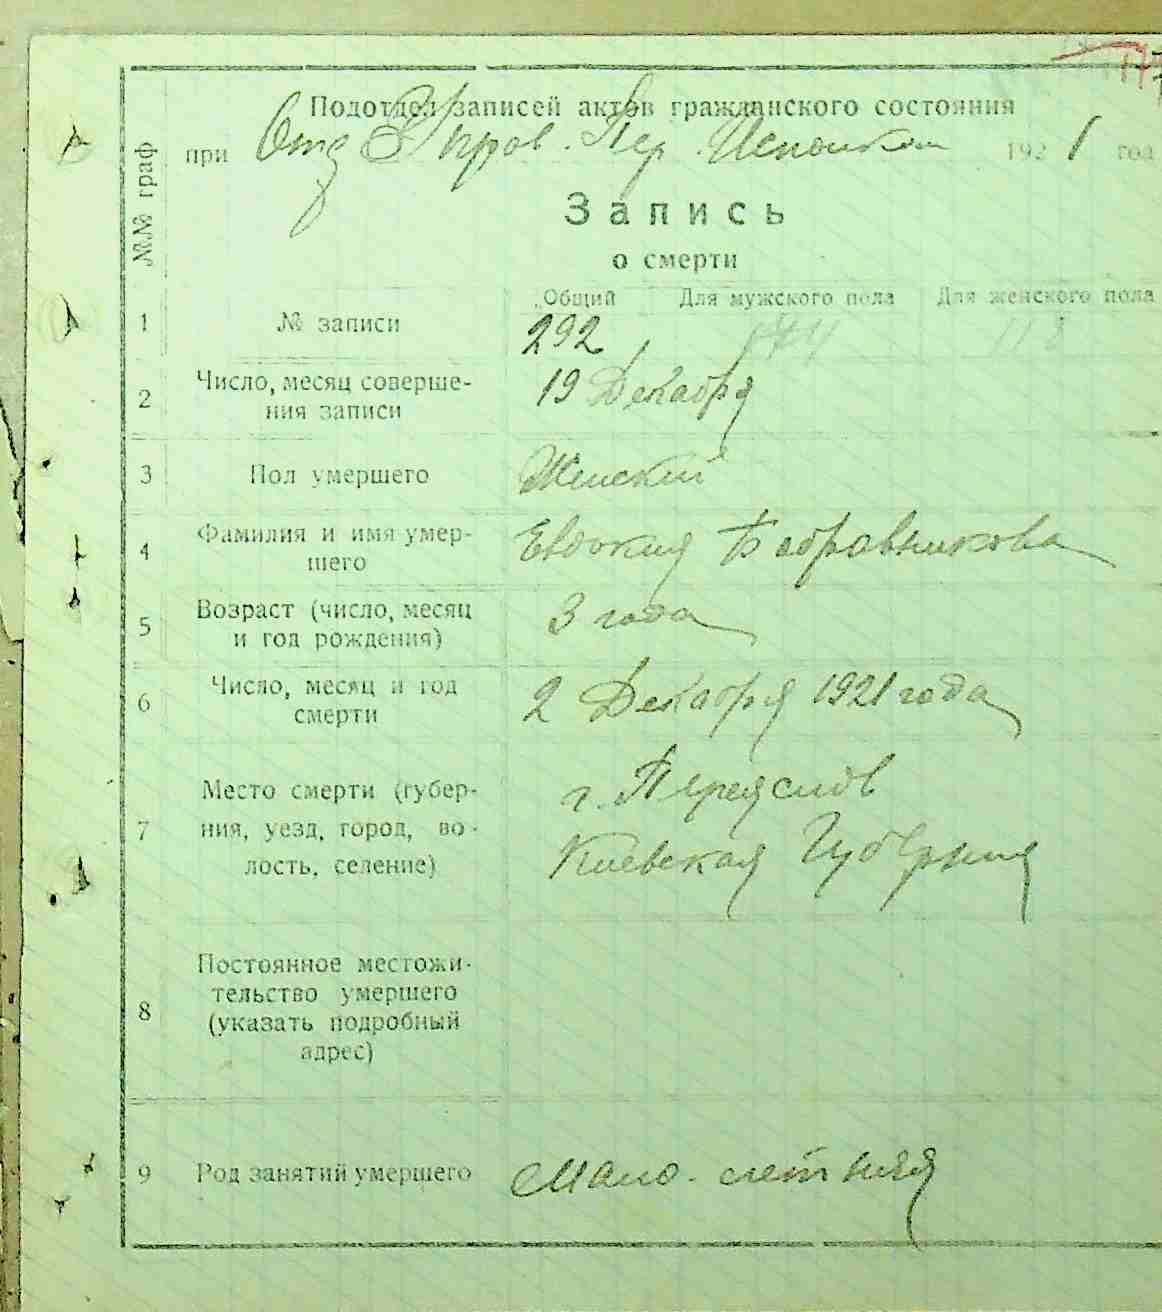 Подотдел записей актов гражданского состояния
при Отд Упров. Пер. Исполком 1921 год
Запись
о смерти
№№ граф
Общий Для мужского пола Для женского пола
1 № записи 292 118
2 Число, месяц соверше-
ния записи 19 Декабря
3 Пол умершего Женский
4 Фамилия и имя умер-
шего Евдокия Бобравникова
5 Возраст (число, месяц
и год рождения) 3 года
6 Число, месяц и год
смерти 2 Декабря 1921 года
7 Место смерти (губер-
ния, уезд, город, во-
лость, селение) г. Переяслов
Киевская Губерния
8 Постоянное местожи-
тельство умершего
(указать подробный
адрес)
9 Род занятий умершего Мало-летняя